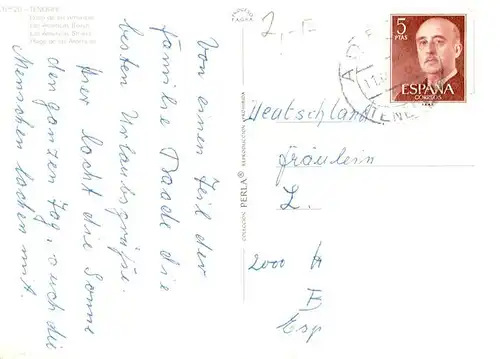 Nº 20 - TENERIFE
Playa de las Américas
Las Americas Beach
Las Americas Strand
Plage de las Américas
Von einen Teil der
familie Daade die
besten Urlaubsgrüße.
Hier lacht die Sonne
den ganzen Tag, auch die
Menschen lachen mit.
COLECCION PERLA® REPRODUCCION PROHIBIDA
FAGRA
2,-F
5
PTAS
ESPAÑA
CORREOS
TENE
Deutschland
Fräulein
L.
2000 H
E
Esp